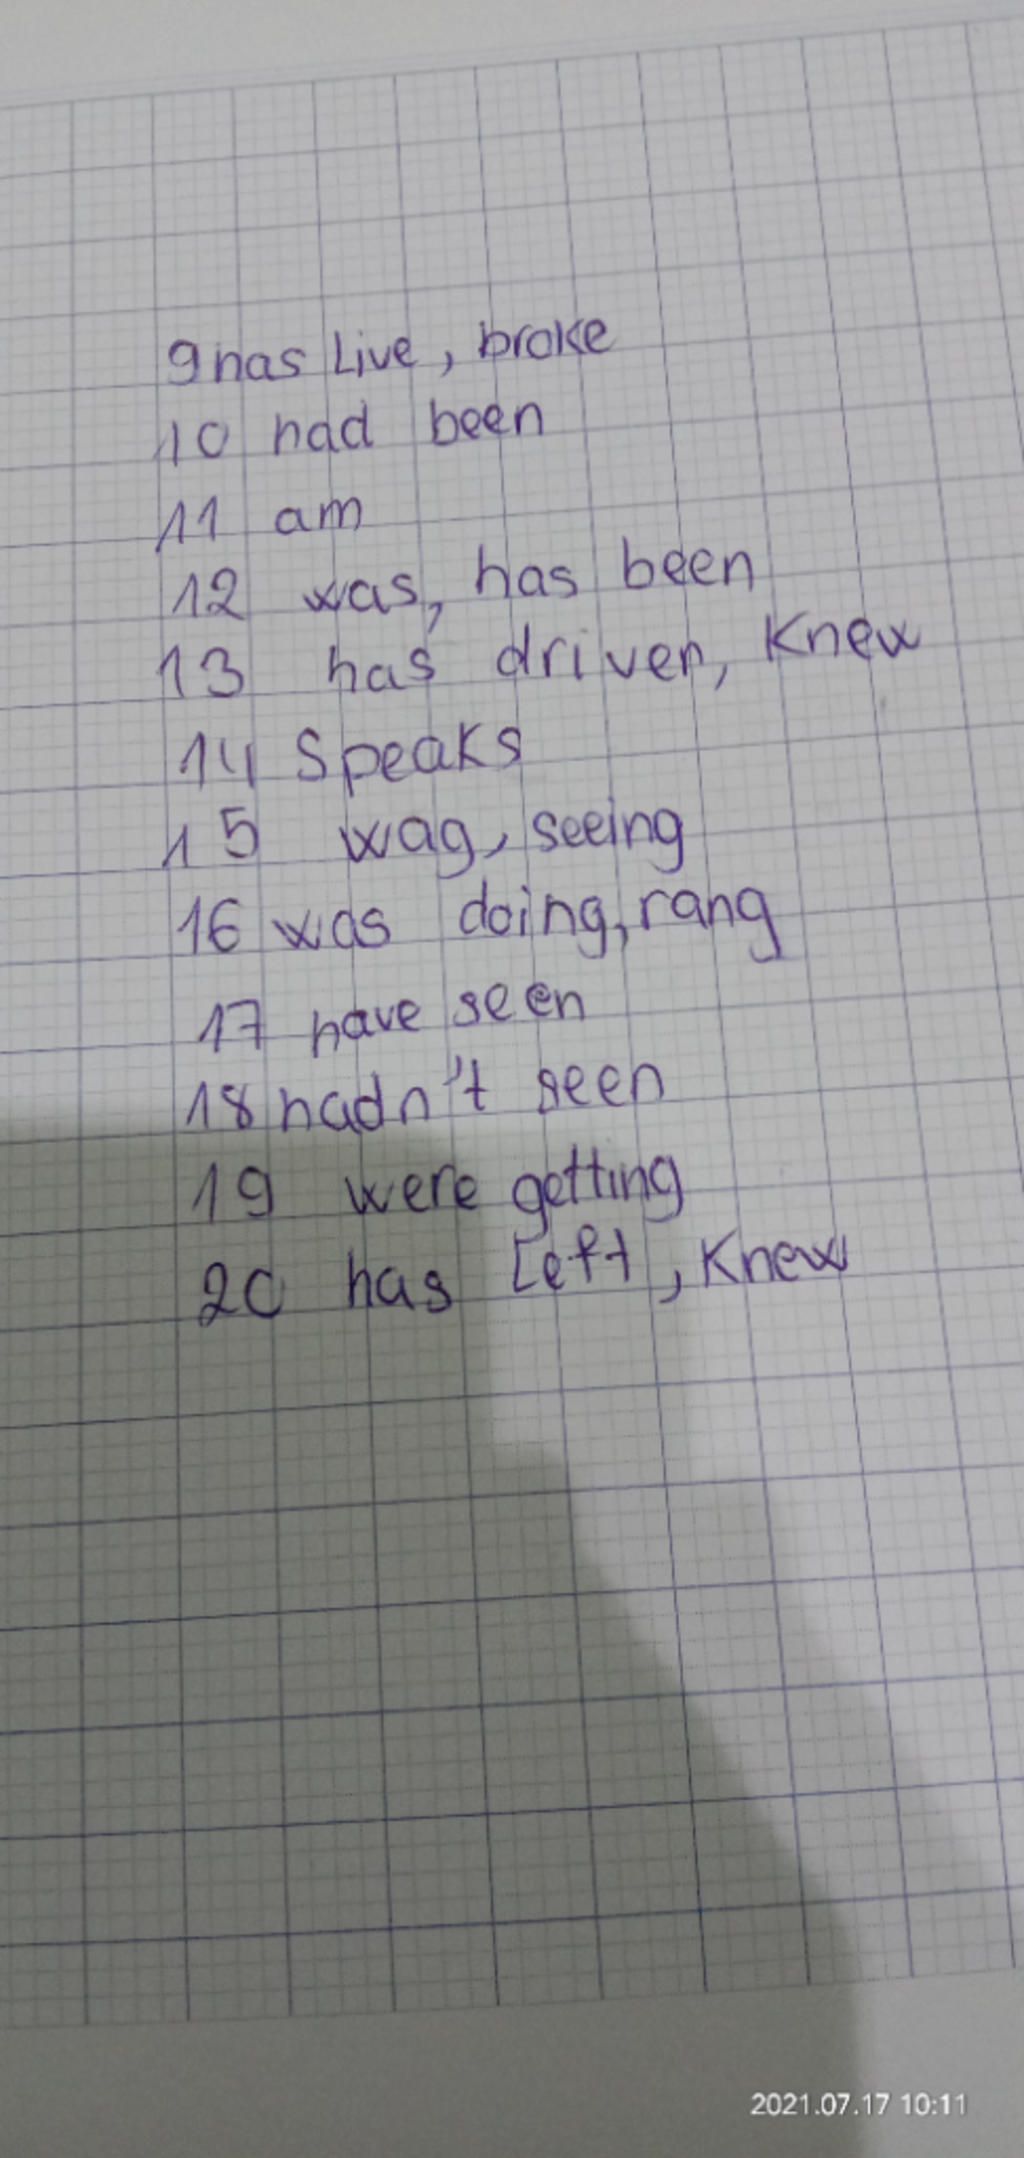 9 has Live, broke
10 had been
11 am
12 was, has been
13 has driven, Knew
14 Speaks
15 wag, seeing
16 was doing, rang
17 have seen
18 hadn't seen
19 were getting
20 has Left, Knew
2021.07.17 10:11